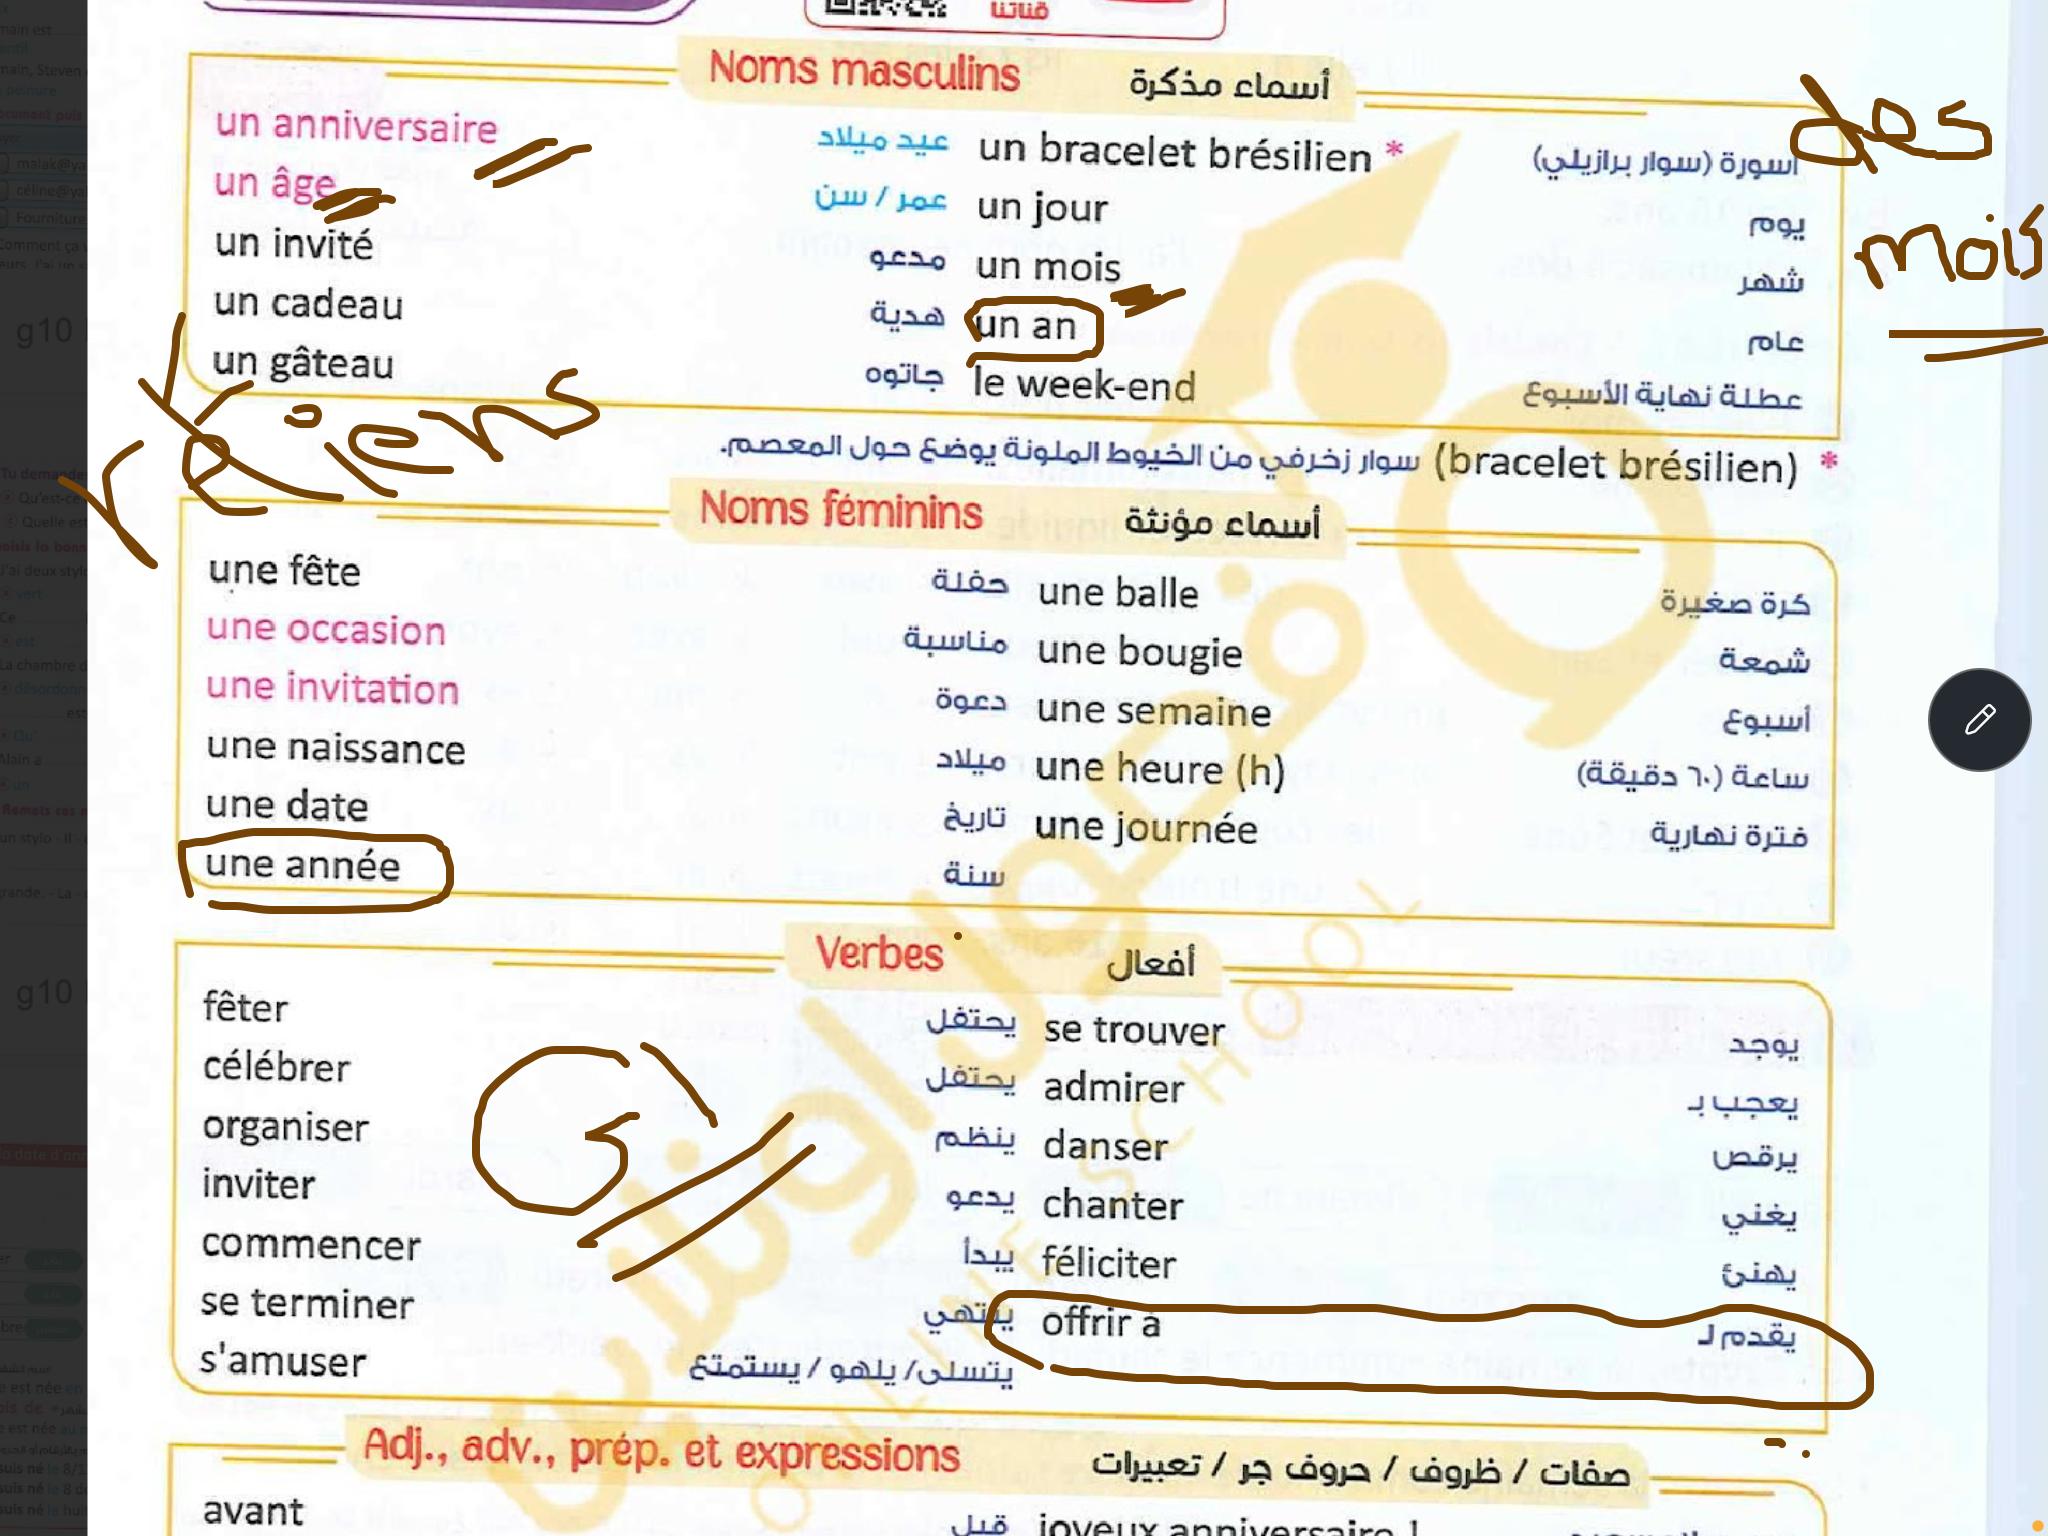 قناتنا
Noms masculins أسماء مذكرة
un anniversaire عيد ميلاد
un âge عمر / سن
un invité مدعو
un cadeau هدية
un gâteau جاتوه
un bracelet brésilien * اسورة (سوار برازيلي)
un jour يوم
un mois شهر
un an عام
le week-end عطلة نهاية الأسبوع
des
mois
* (bracelet brésilien) سوار زخرفي من الخيوط الملونة يوضع حول المعصم.
Noms féminins أسماء مؤنثة
une fête حفلة
une occasion مناسبة
une invitation دعوة
une naissance ميلاد
une date تاريخ
une année سنة
une balle كرة صغيرة
une bougie شمعة
une semaine أسبوع
une heure (h) ساعة (٦٠ دقيقة)
une journée فترة نهارية
Verbes أفعال
fêter يحتفل
célébrer يحتفل
organiser ينظم
inviter يدعو
commencer يبدأ
se terminer ينتهي
s'amuser يتسلى/ يلهو / يستمتع
se trouver يوجد
admirer يعجب بـ
danser يرقص
chanter يغني
féliciter يهنئ
offrir à يقدم لـ
Adj., adv., prép. et expressions صفات / ظروف / حروف جر / تعبيرات
avant قبل
joyeux anniversaire !
g10
g10